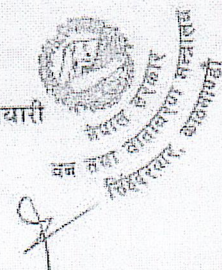 यारी
नेपाल सरकार
वन तथा वातावरण मन्त्रालय
सिंहदरबार, काठमाण्डौ